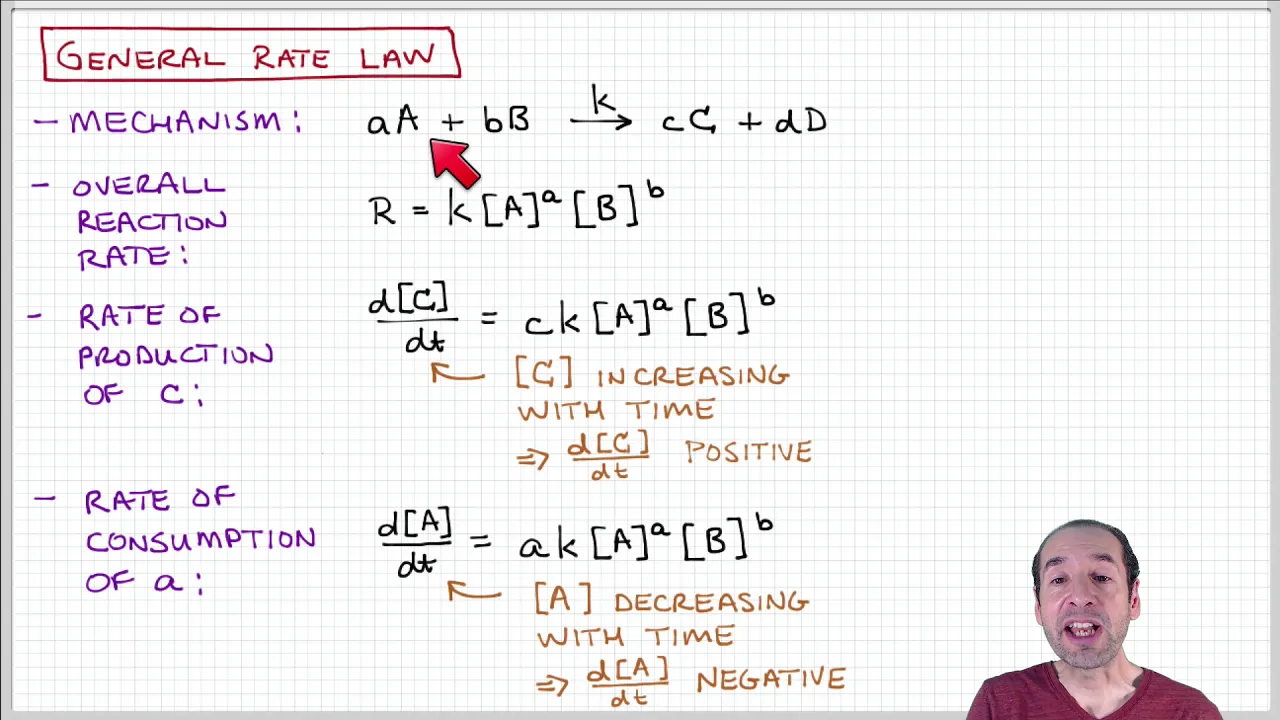 GENERAL RATE LAW
- MECHANISM: aA + bB k→ cC + dD
- OVERALL REACTION RATE: R = k[A]^a [B]^b
- RATE OF PRODUCTION OF C: d[C]/dt = ck[A]^a [B]^b
← [C] INCREASING
WITH TIME
⇒ d[C]/dt POSITIVE
- RATE OF CONSUMPTION OF a: d[A]/dt = ak[A]^a [B]^b
← [A] DECREASING
WITH TIME
⇒ d[A]/dt NEGATIVE